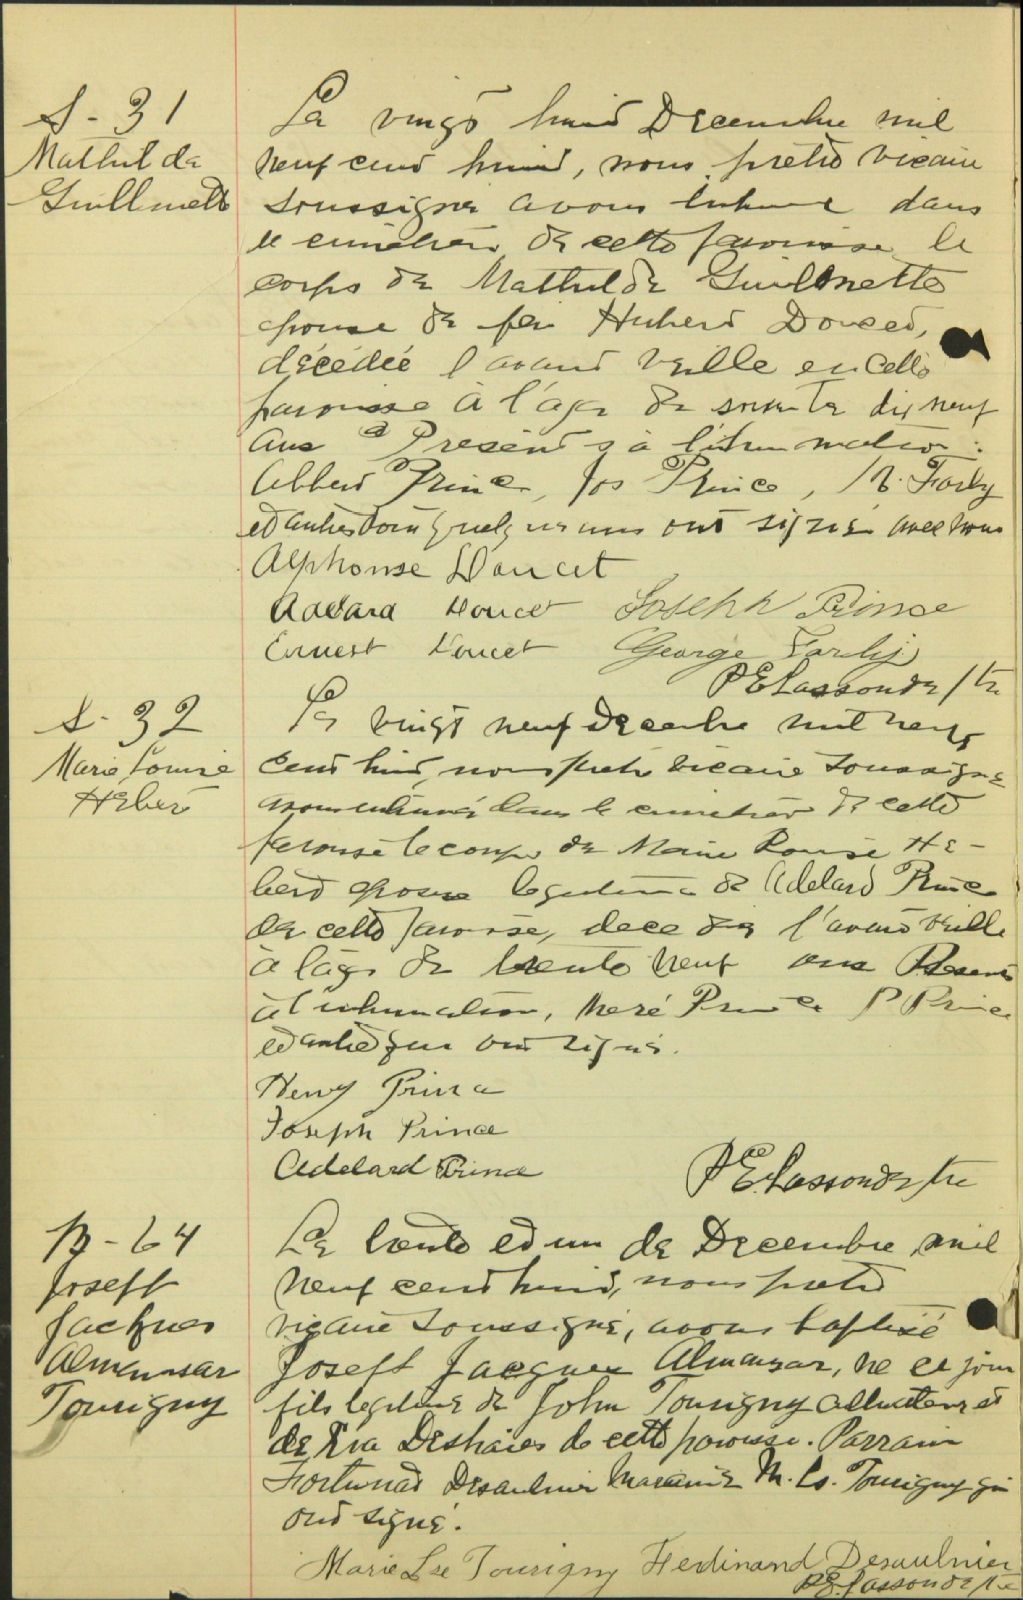 S - 31
Mathilda
Guillmette
Le vingt huit Decembre mil
neuf cent huit, nous, prêtre vicaire
soussigné avons inhumé dans
le cimetière de cette paroisse le
corps de Mathilde Guillmette
épouse de feu Hubert Doucet,
décédée l'avant veille en cette
paroisse à l'age de soixante dix neuf
ans Présents à l'inhumation :
Albert Prince, Jos Prince, N. Farly
et autres dont quelques uns ont signé avec nous
Alphonse Doucet
Adélard Doucet Joseph Prince
Ernest Doucet George Farly
P E Lassonde ptre
S - 32
Marie Louise
Hebert
Le vingt neuf Decembre mil neuf
cent huit, nous prêtre vicaire soussigné
avons inhumé dans le cimetière de cette
paroisse le corps de Marie Louise He-
bert épouse legitime de Adelard Prince
de cette paroisse, decedée l'avant veille
à l'age de trente neuf ans Presents
à l'inhumation, Prince P Prince
et autres qui ont signé.
Henry Prince
Joseph Prince
Adelard Prince
P E Lassonde ptre
B - 64
Joseph
Jacques
Almansar
Tourigny
Le trente et un de Decembre mil
neuf cent huit, nous prêtre
vicaire soussigné, avons baptisé
Joseph Jacques Almansar, né ce jour
fils legitime de John Tourigny cultivateur et
de Eva Deshaies de cette paroisse. Parrain
Fortunat Desaulnier Marraine M. Ls. Tourigny qui
ont signé.
Marie Lse Tourigny Ferdinand Desaulnier
P E Lassonde ptre